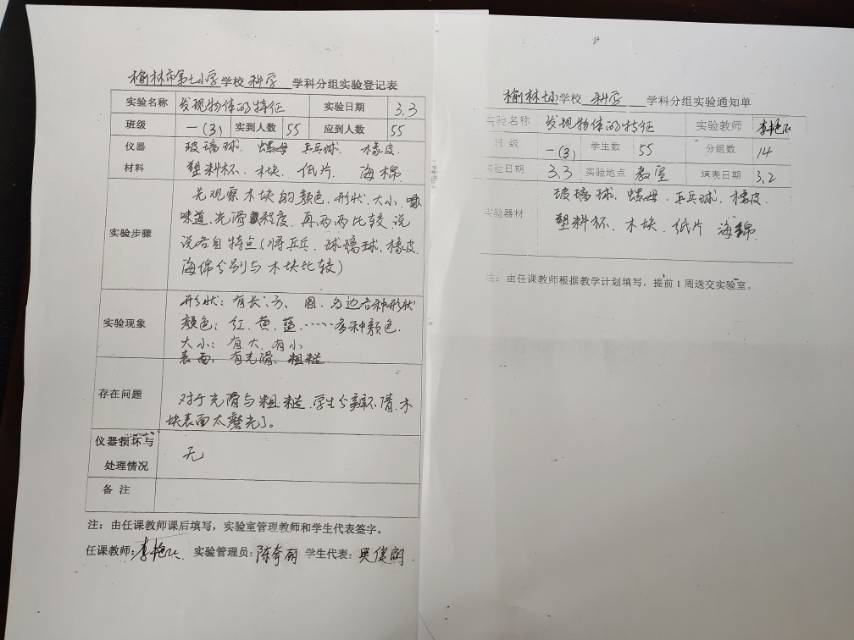 榆林市第七小学学校 科学 学科分组实验登记表
实验名称 发现物体的特征 实验日期 3.3
班级 一(3) 实到人数 55 应到人数 55
仪器 玻璃球、螺母、乒乓球、橡皮
材料 塑料杯、木块、纸片、海棉
先观察木块的颜色、形状、大小、
味道、光滑程度、再两两比较说
实验步骤 说各自特点(将乒乓、球璃球、橡皮
海绵分别与木块比较)
形状：有长、方、圆、多边各种形状
实验现象 颜色：红、黄、蓝……多种颜色
大小：有大、有小
表面：有光滑、粗糙
存在问题 对于光滑与粗糙、学生分辨不清、木
块表面太磨光了。
仪器损坏与
处理情况 无
备注
注：由任课教师课后填写，实验室管理教师和学生代表签字。
任课教师: 实验管理员: 学生代表:
榆林城学校 科学 学科分组实验通知单
实验名称 发现物体的特征 实验教师
班级 一(3) 学生数 55 分组数 14
实验日期 3.3 实验地点 教室 填表日期 3.2
玻璃球、螺母、乒乓球、橡皮
实验器材 塑料杯、木块、纸片 海绵
注：由任课教师根据教学计划填写，提前1周送交实验室。